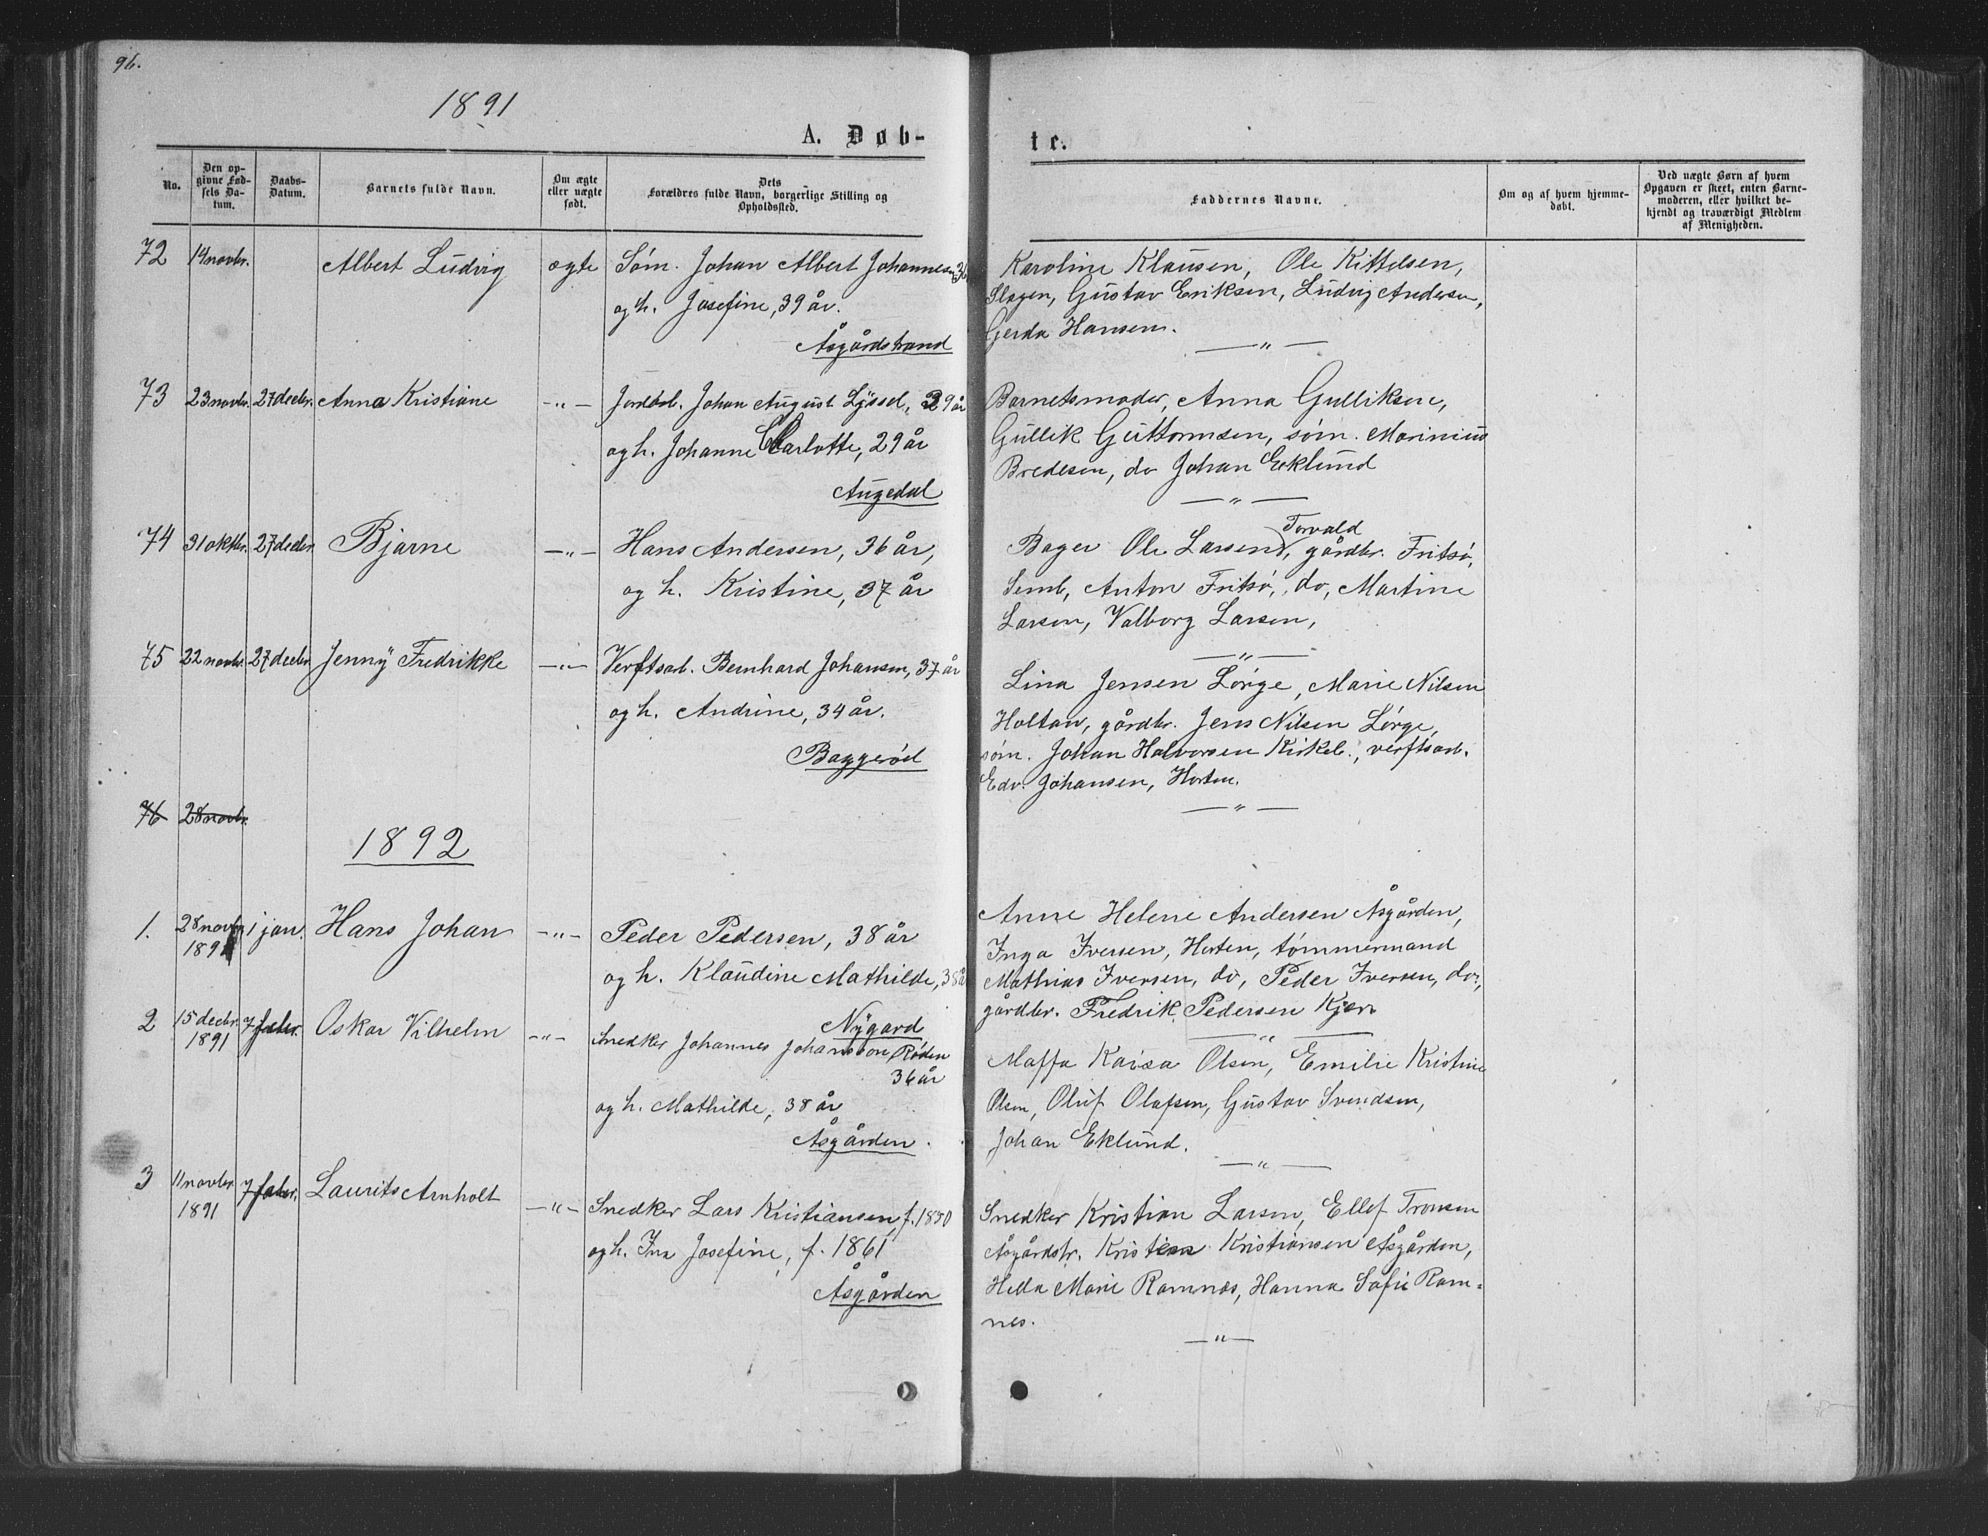 96.
1891
A. Døb-
te.
No.
Den op-
givne Fød-
sels Da-
tum.
Daabs-
Datum.
Barnets fulde Navn.
Om ægte
eller uægte
født.
Dets
Forældres fulde Navn, borgerlige Stilling og
Opholdssted.
Faddernes Navne.
Om og af hvem hjemme-
døbt.
Ved uægte Børn af hvem
Opgaven er skeet, enten Barne-
moderen, eller hvilket be-
kjendt og troværdigt Medlem
af Menigheden.
72 14 novbr. Albert Ludvig ægte Søm. Johan Albert Johannesen 36
og h. Josefine, 39 år.
Åsgårdstrand
Karoline Klausen, Ole Kittelsen,
Slagen, Gustav Eriksen, Ludvig Andersen,
Gerda Hansen.
— " —
73 23 novbr. 27 decbr. Anna Kristiane — " — Jordbr. Johan August Lyssel, 29 år
og h. Johanne Charlotte, 29 år
Augedal
Barnets moder, Anna Gulliksen,
Gullik Guttormsen, søm. Marinius
Bredesen, do Johan Ecklund
— " —
74 31 oktbr. 27 decbr. Bjarne — " — Hans Andersen, 36 år,
og h. Kristine, 37 år
Torvald
Bager Ole Larsen, gårdbr. Fritsø,
Semb, Anton Fritsø, do, Martine
Larsen, Valborg Larsen,
— " —
75 22 novbr. 27 decbr. Jenny Fredrikke — " — Verftsarb. Bernhard Johansen, 37 år
og h. Andrine, 34 år.
Baggerød
Lina Jensen Lørge, Marie Nilsen
Holtan, gårdbr. Jens Nilsen Lørge,
søm. Johan Halvorsen Kirkeb., verftsarb.
Edv. Johansen, Horten.
— " —
76 28 novbr.
1892
1. 28 novbr. 1891 1 jan. Hans Johan — " — Peder Pedersen, 38 år
og h. Klaudine Mathilde, 38 å
Nygard
Anne Helene Andersen Åsgården,
Inga Iversen, Horten, tømmermand
Mathias Iversen, do, Peder Iversen, do,
gårdbr. Fredrik Pedersen Kjær
— " —
2 15 decbr. 1891 7 febr. Oskar Vilhelm — " — Snedker Johannes Johansson Røden
36 år
og h. Mathilde, 38 år
Åsgården.
Maffa Kaisa Olsen, Emilie Kristine
Olsen, Oluf Olafsen, Gustav Svendsen,
Johan Eklund.
— " —
3 11 novbr. 1891 7 febr. Laurits Arnholt — " — Snedker Lars Kristiansen, f. 1850
og h. Ina Josefine, f. 1861
Åsgården
Snedker Kristian Larsen, Ellef Tronsen
Åsgårdstr. Kristian Kristiansen Åsgården,
Hilda Marie Ramnæs, Hanna Sofie Ram-
nes.
— " —